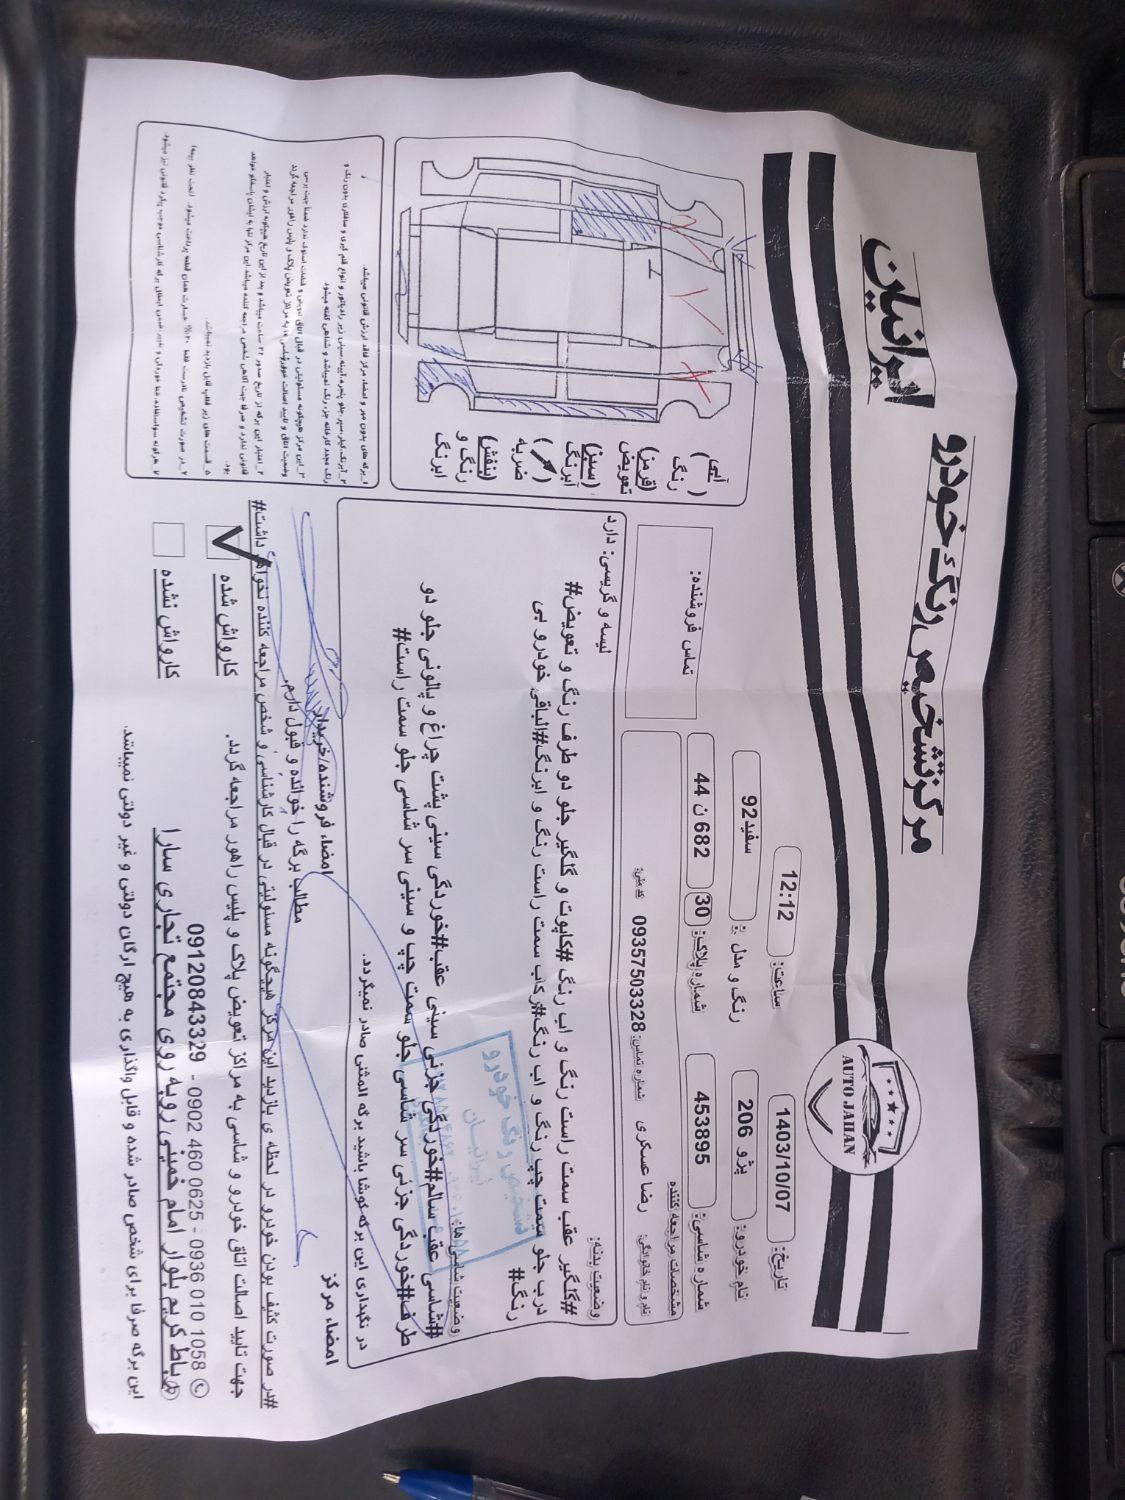 مرکز تشخیص رنگ خودرو
ایرانیان
AUTO JAHAN
تاریخ: 1403/10/07
ساعت: 12:12
نام خودرو: پژو 206
رنگ و مدل : سفید92
شماره شاسی: 453895
شماره پلاک: 30 682 ن 44
مشخصات مراجعه کننده
نام و نام خانوادگی: رضا عسکری شماره تماس: 09357503328 کد ملی:
تماس فروشنده:
وضعیت بدنه:
لیسه و گریسی: دارد
#گلگیر عقب سمت راست رنگ و اب رنگ #کاپوت و گلگیر جلو دو طرف رنگ و تعویض#
درب جلو سمت چپ رنگ و اب رنگ#رکاب سمت راست رنگ و ابرنگ#الباقی خودرو بی
رنگ#
وضعیت شاسی ها:
#شاسی عقب سالم#خوردگی جزئی سینی عقب#خوردگی سینی پشت چراغ و پالونی جلو دو
طرف#خوردگی جزئی سر شاسی جلو سمت چپ و سینی سر شاسی جلو سمت راست#
تشخیص رنگ خودرو
ایرانیان
در نگهداری این برگه کوشا باشید برگه المثنی صادر نمیگردد.
آبی
( )
رنگ
(قرمز)
تعویض
(سبز)
آبرنگ
( )
ضربه
(بنفش)
رنگ و
ابرنگ
۱_برگه های بدون مهر و امضاء مرکز فاقد ارزش قانونی میباشد.
امضاء مرکز
امضاء فروشنده/خریدار
مطالب برگه را خوانده و قبول دارم.
#در صورت کثیف بودن خودرو در لحظه ی بازدید این مرکز هیچگونه مسئولیتی در قبال کارشناسی و شخص مراجعه کننده نخواهد داشت#
جهت تایید اصالت اتاق خودرو و شاسی به مراکز تعویض پلاک و پلیس راهور مراجعه گردد.
کارواش شده
کارواش نشده
09120843329 - 0902 460 0625 - 0936 010 1058
رباط کریم بلوار امام خمینی روبه روی مجتمع تجاری سارا
این برگه صرفا برای شخص صادر شده و قابل واگذاری به هیچ ارگان دولتی و غیر دولتی نمیباشد.